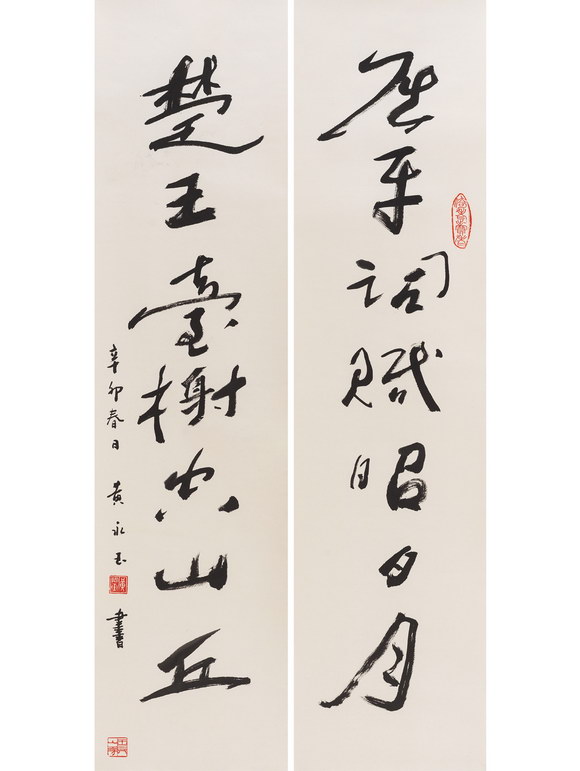 屈平詞賦昭日月
楚王臺榭空山丘
辛卯春日 黄永玉 書